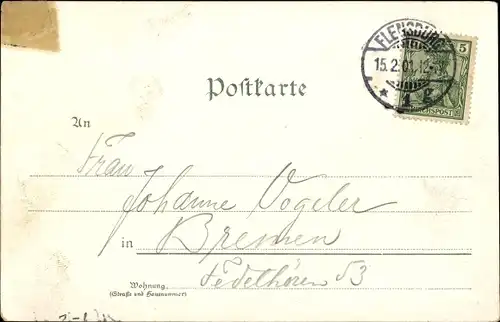 FLENSBURG
15.2.01.
5
REICHSPOST
Postkarte
An
Frau
Johanne Vogeler
in Bremen
Fedelhören 53
Wohnung
(Straße und Hausnummer)